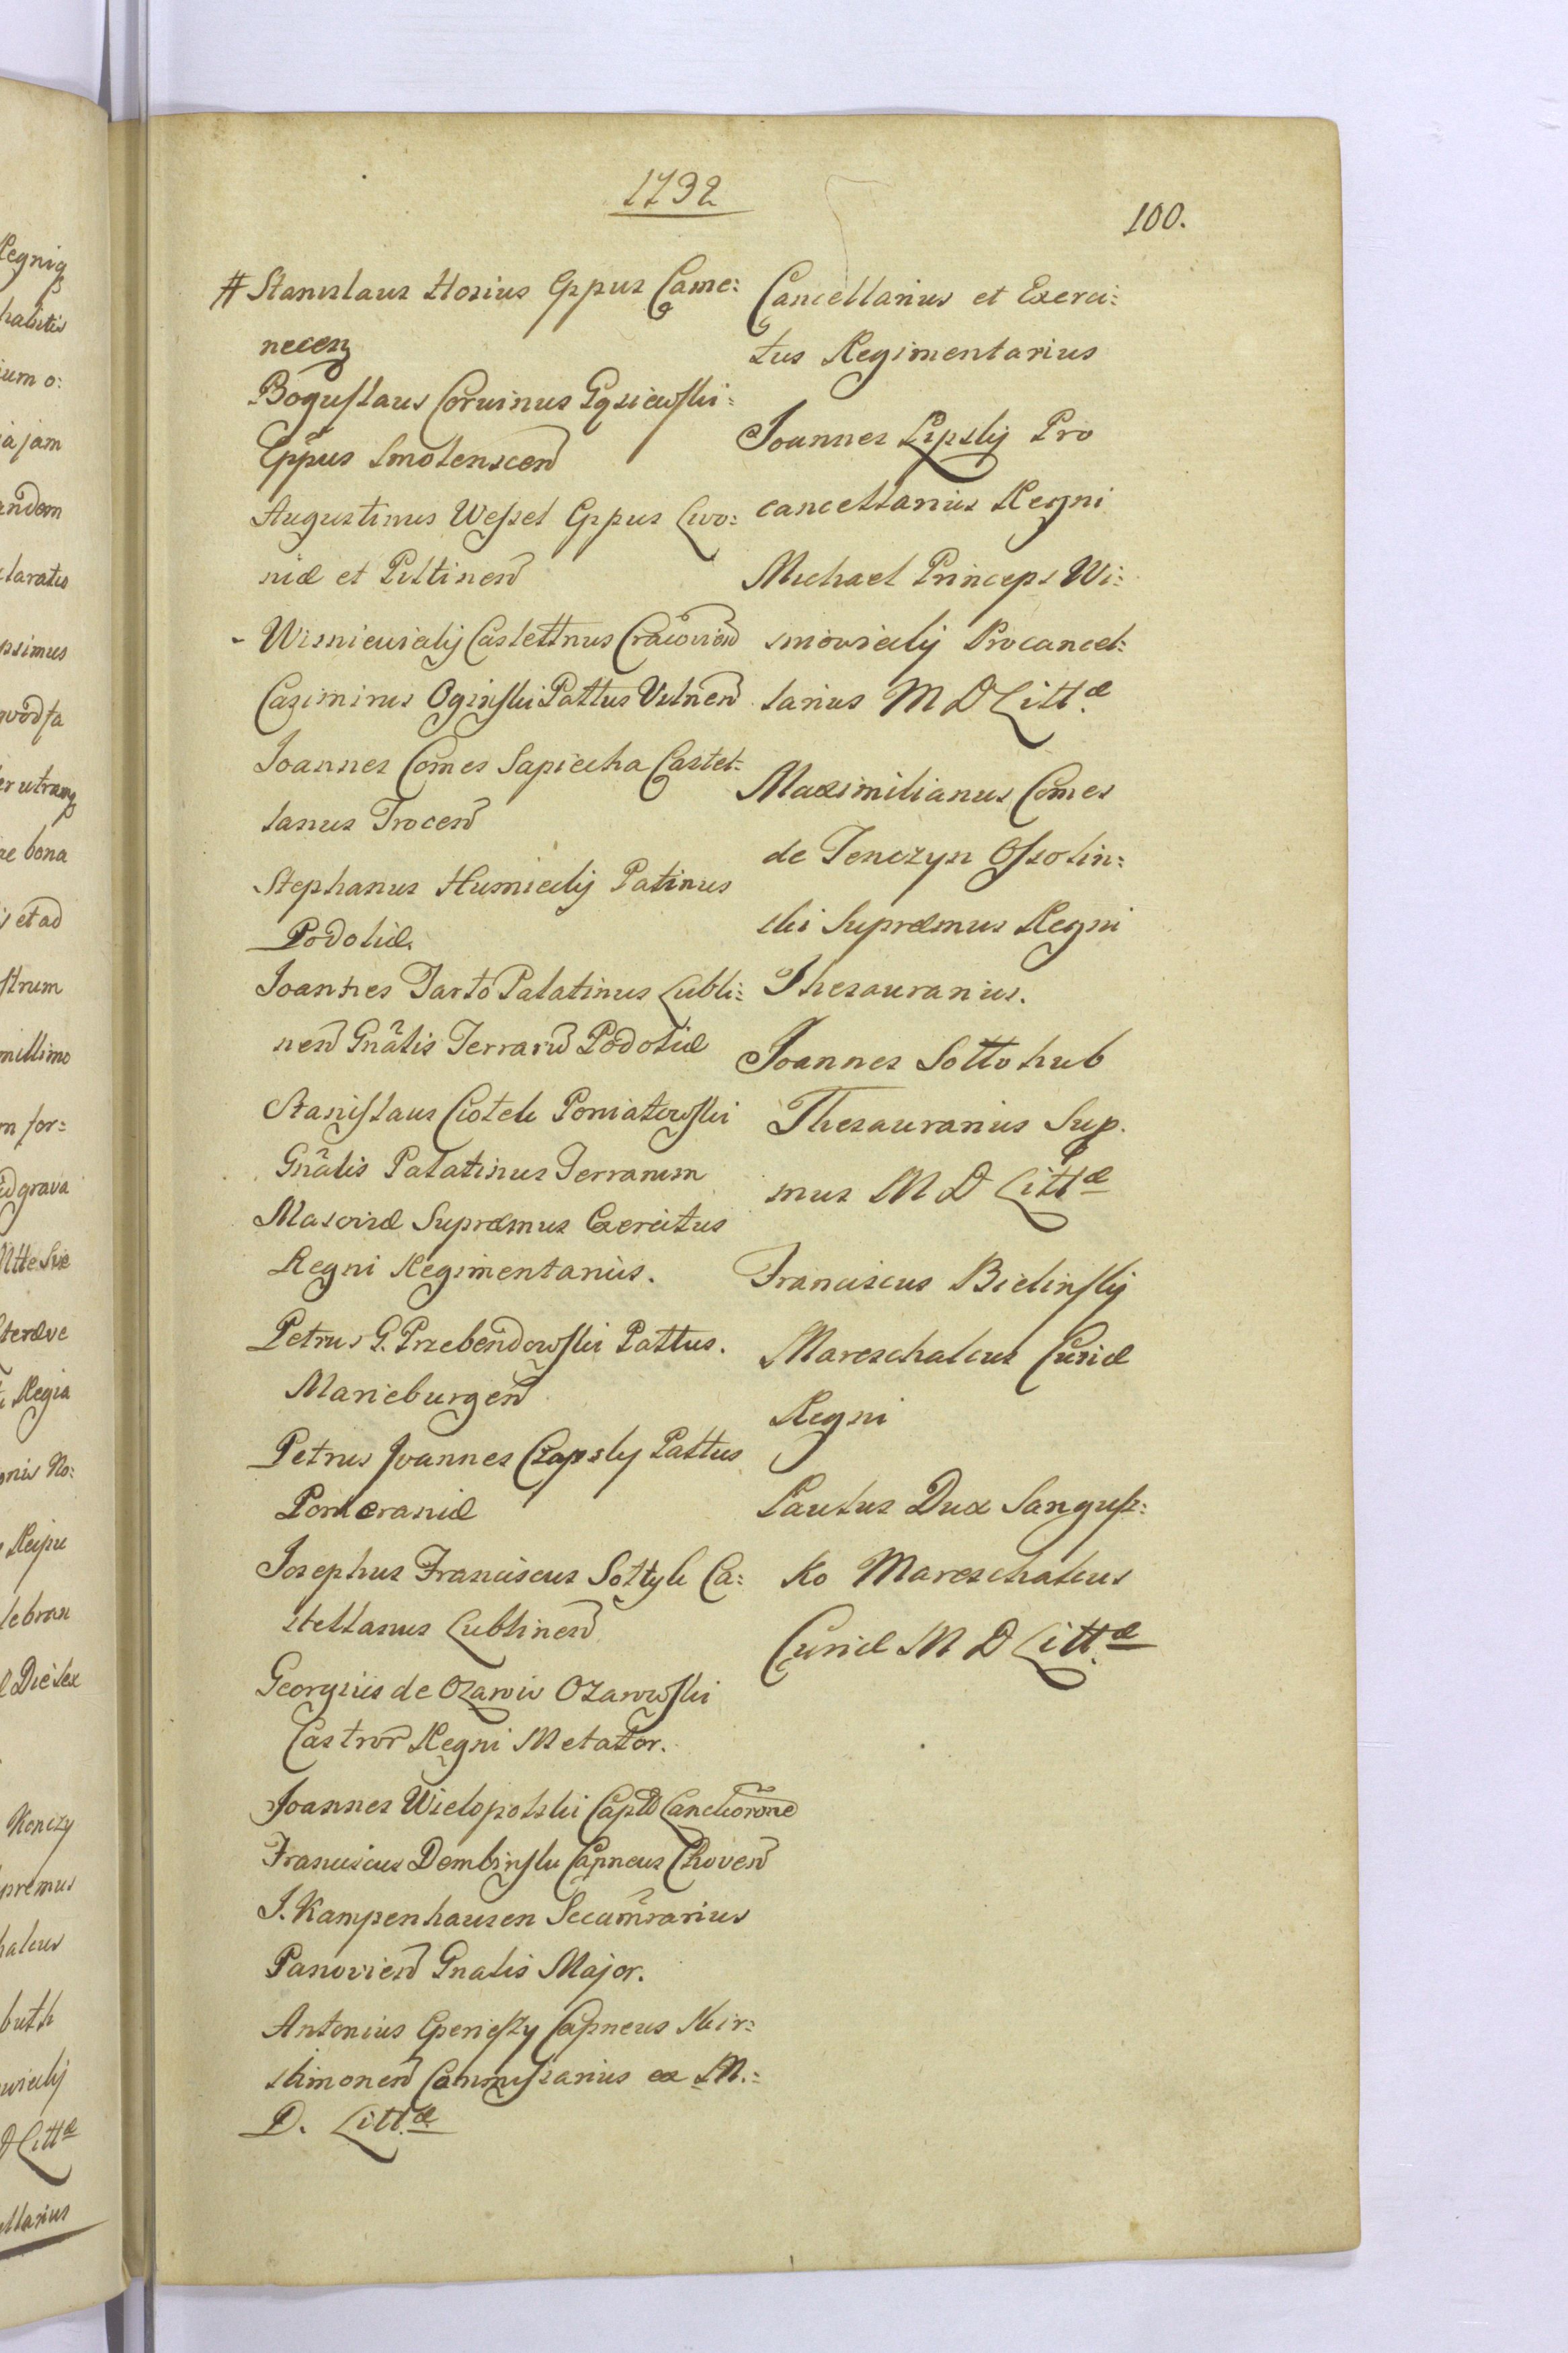 1732
100.
# Stanislaus Hosius Eppus Came:
necen
Boguslaus Corvinus Gąsiewski
Eppus Smolenscen
Augustinus Wessel Eppus Livo:
niæ et Piltinen
- Wisniewickij Castellnus Cracovien
Casimirus Oginski Pallus Vilnen
Joannes Comes Sapiecha Castel:
lanus Trocen
Stephanus Humieckij Patinus
Podoliæ
Joannes Tarło Palatinus Lubli:
nen Gnalis Terraru Podoliæ
Stanislaus Ciołek Poniatowski
Gnalis Palatinus Terrarum
Masoviæ Supræmus Exercitus
Regni Regimentarius.
Petrus G. Przebendowski Pallus.
Marieburgen
Petrus Joannes Czapskij Pallus
Pomeraniæ
Josephus Franciscus Sołtyk Ca:
stellanus Lublinen
Georgius de Ozarow Ozarowski
Castror Regni Metator.
Joannes Wielopolski Capts Lanckorone
Franciscus Dembinski Capneus
J. Kampenhausen Seccamrarius
Parnovien Gnalis Major.
Antonius Capneus Kir:
Commissarius ex M.:
D. Littæ
Cancellarius et Exerci:
tus Regimentarius
Joannes Lipskij Pro
cancellarius Regni
Michael Princeps Wi:
sniowieckij Procancel:
larius M D Littæ
Maximilianus Comes
de Tenczyn Ossolin:
ski Supræmus Regni
Thesaurarius.
Joannes Sołłohub
Thesaurarius Sup.
mus M D Littæ
Franciscus Bielinskij
Mareschalcus Curiæ
Regni
Paulus Dux Sangusz:
ko Mareschalcus
Curiæ M D Littæ